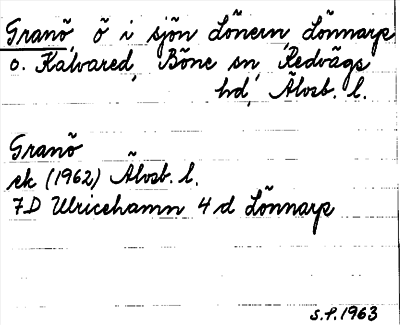 Granö, ö i sjön Lönern, Lönnarp
o. Kalvared, Böne sn, Redvägs
hd, Älvsb. l.
Granö
ek (1962) Älvsb. l.
7D Ulricehamn 4d Lönnarp
s.f. 1963